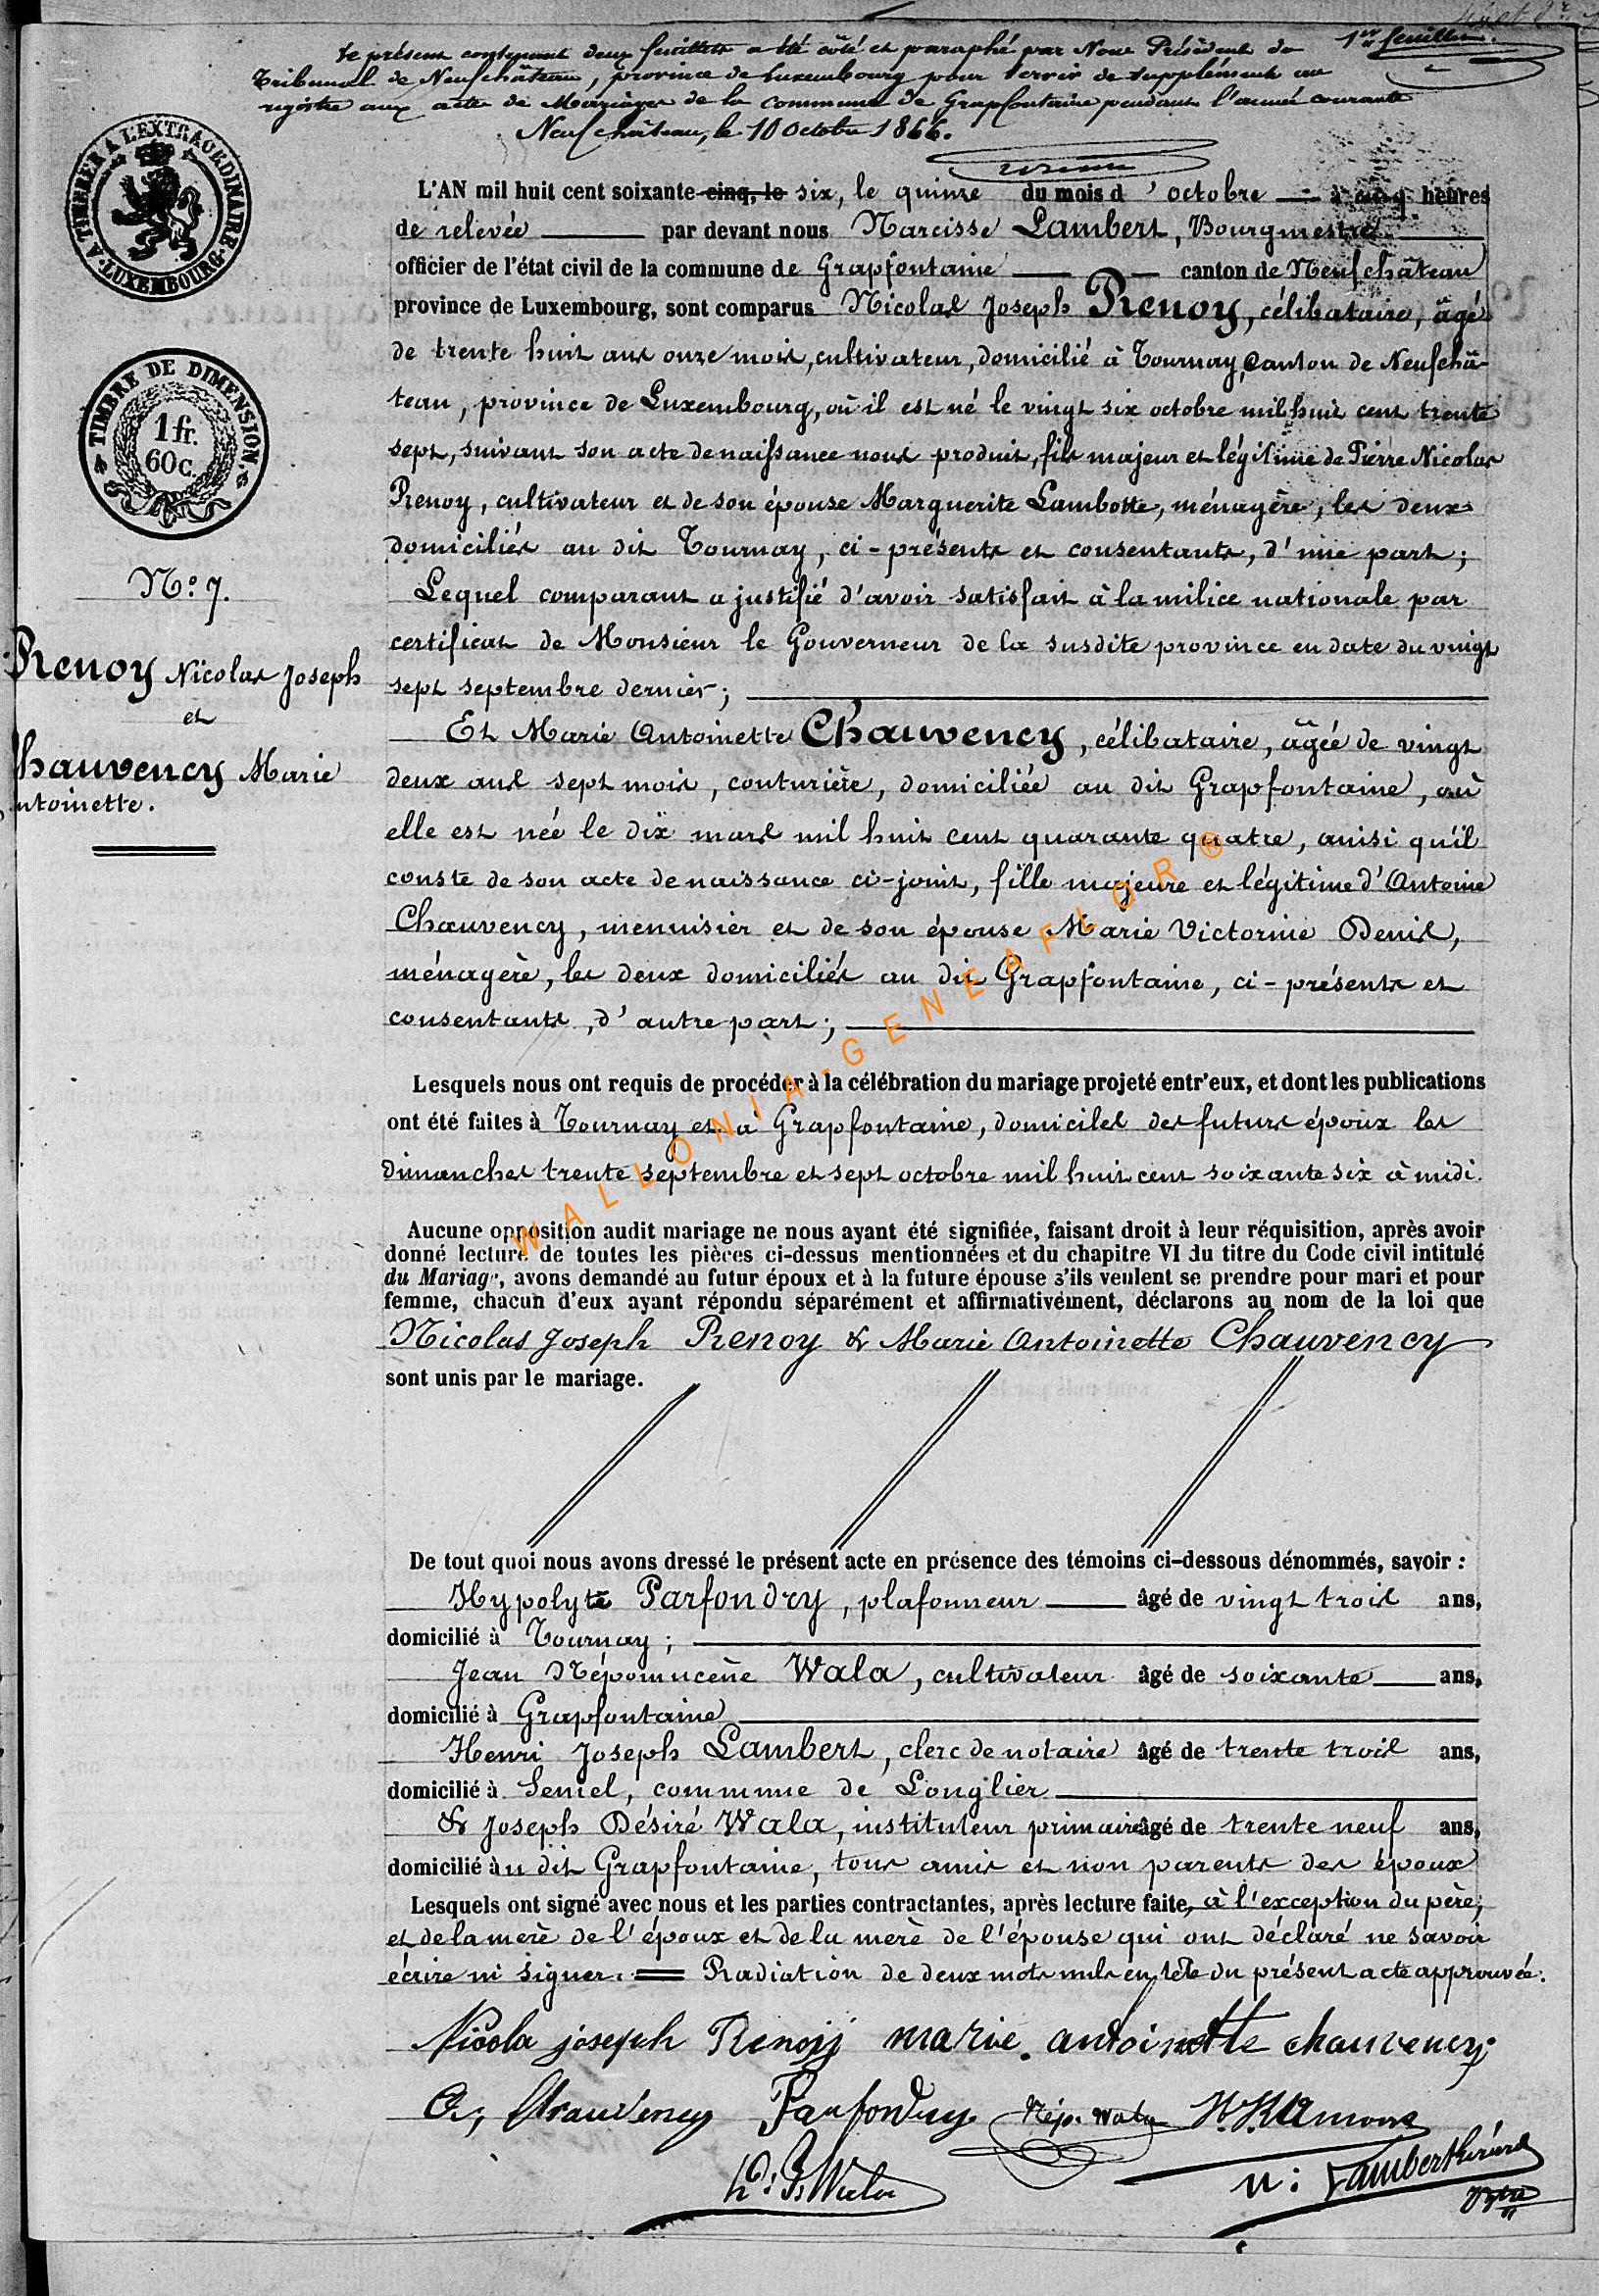 1er feuillet.
Le présent contenant deux feuillets a été côté et paraphé par Nous Président du
Tribunal de Neufchâteau, province de Luxembourg pour servir de supplément au
registre aux actes de Mariages de la commune de Grapfontaine pendant l'année courante
Neufchâteau, le 10 Octobre 1866.
A TIMBRER A L'EXTRAORDINAIRE
LUXEMBOURG
TIMBRE DE DIMENSION.
1 fr.
60 c.
No. 7.
Renoy Nicolas Joseph
et
Chauvency Marie
Antoinette.
L'AN mil huit cent soixante-cinq, le six, le quinze du mois d'octobre à cinq heures
de relevée par devant nous Narcisse Lambert, Bourgmestre
officier de l'état civil de la commune de Grapfontaine canton de Neufchâteau
province de Luxembourg, sont comparus Nicolas Joseph Renoy, célibataire, âgé
de trente huit ans onze mois, cultivateur, domicilié à Tournay, canton de Neufchâ-
teau, province de Luxembourg, où il est né le vingt six octobre mil huit cent trente
sept, suivant son acte de naissance nous produit, fils majeur et légitime de Pierre Nicolas
Renoy, cultivateur et de son épouse Marguerite Lambotte, ménagère, les deux
domiciliés au dit Tournay, ci-présents et consentants, d'une part;
Lequel comparant a justifié d'avoir satisfait à la milice nationale par
certificat de Monsieur le Gouverneur de la susdite province en date du vingt
sept septembre dernier;
Et Marie Antoinette Chauvency, célibataire, âgée de vingt
deux ans sept mois, couturière, domiciliée au dit Grapfontaine, où
elle est née le dix mars mil huit cent quarante quatre, ainsi qu'il
conste de son acte de naissance ci-joint, fille majeure et légitime d'Antoine
Chauvency, menuisier et de son épouse Marie Victorine Denis,
ménagère, les deux domiciliés au dit Grapfontaine, ci-présents et
consentants, d'autre part;
Lesquels nous ont requis de procéder à la célébration du mariage projeté entr'eux, et dont les publications
ont été faites à Tournay et à Grapfontaine, domiciles des futurs époux les
dimanches trente septembre et sept octobre mil huit cent soixante six à midi.
Aucune opposition audit mariage ne nous ayant été signifiée, faisant droit à leur réquisition, après avoir
donné lecture de toutes les pièces ci-dessus mentionnées et du chapitre VI du titre du Code civil intitulé
du Mariage, avons demandé au futur époux et à la future épouse s'ils veulent se prendre pour mari et pour
femme, chacun d'eux ayant répondu séparément et affirmativement, déclarons au nom de la loi que
Nicolas Joseph Renoy & Marie Antoinette Chauvency
sont unis par le mariage.
De tout quoi nous avons dressé le présent acte en présence des témoins ci-dessous dénommés, savoir :
Hypolyte Parfondry, plafonneur âgé de vingt trois ans,
domicilié à Tournay;
Jean Népomucène Wala, cultivateur âgé de soixante ans,
domicilié à Grapfontaine
Henri Joseph Lambert, clerc de notaire âgé de trente trois ans,
domicilié à Semel, commune de Longlier
& Joseph Désiré Wala, instituteur primaire âgé de trente neuf ans,
domicilié àu dit Grapfontaine, tous amis et non parents des époux
Lesquels ont signé avec nous et les parties contractantes, après lecture faite, à l'exception du père,
et de la mère de l'époux et de la mère de l'épouse qui ont déclaré ne savoir
écrire ni signer. Radiation de deux mots nuls en tête du présent acte approuvée.
Nicola joseph Renoy marie antoinette chauvency
A, Chauvency Parfondry Nép. Wala
Wala N: Lambert
WALLONIA-GENEAFLOR ®